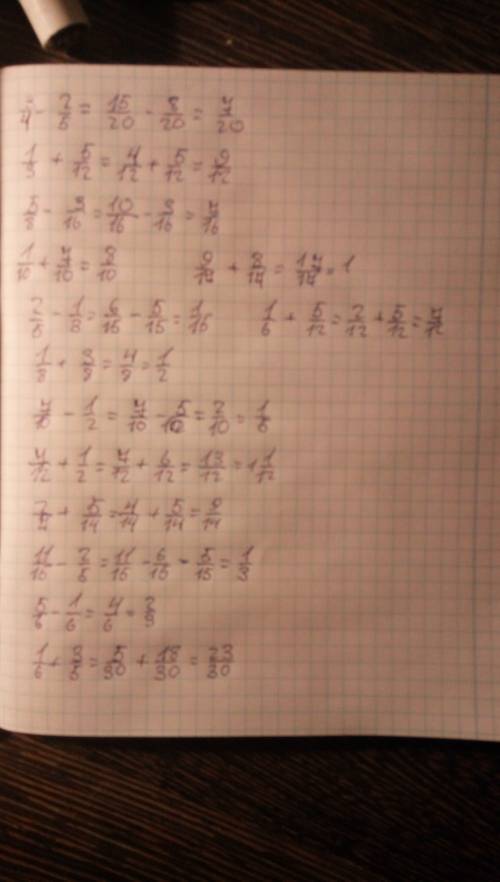 3/4 - 2/5 = 15/20 - 8/20 = 7/20
1/3 + 5/12 = 4/12 + 5/12 = 9/12
5/8 - 3/16 = 10/16 - 3/16 = 7/16
1/10 + 7/10 = 8/10    9/14 + 8/14 = 17/14 = 1
2/5 - 1/3 = 6/15 - 5/15 = 1/15    1/6 + 5/12 = 2/12 + 5/12 = 7/12
1/8 + 3/8 = 4/8 = 1/2
7/10 - 1/2 = 7/10 - 5/10 = 2/10 = 1/5
7/12 + 1/2 = 7/12 + 6/12 = 13/12 = 1 1/12
2/7 + 5/14 = 4/14 + 5/14 = 9/14
11/15 - 2/5 = 11/15 - 6/15 = 5/15 = 1/3
5/6 - 1/6 = 4/6 = 2/3
1/6 + 3/5 = 5/30 + 18/30 = 23/30